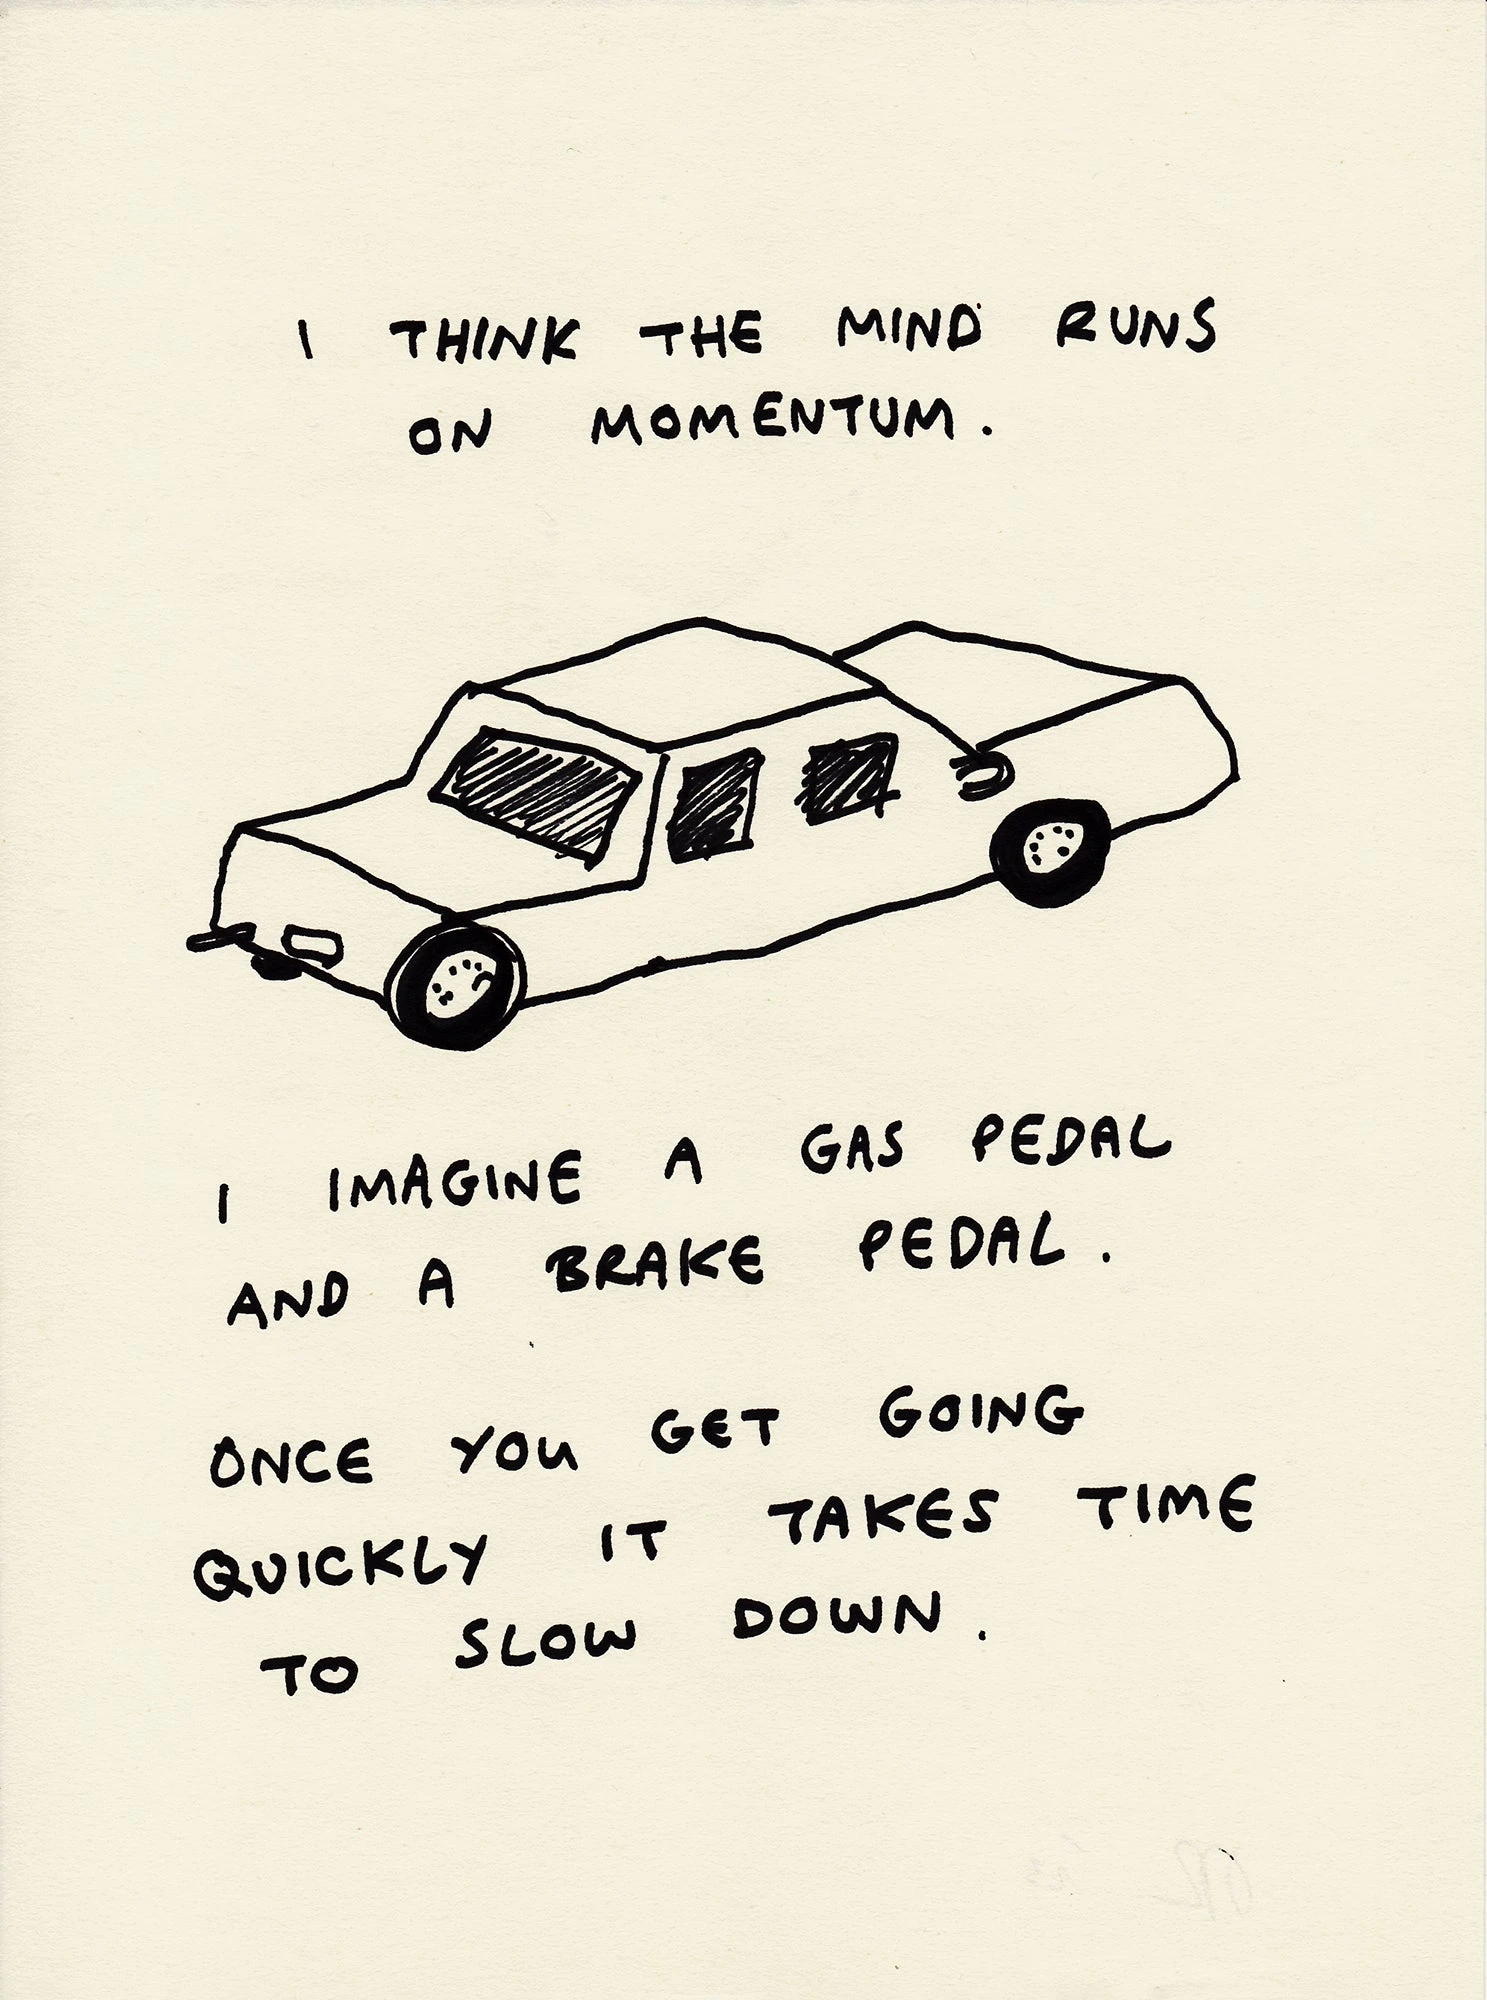 I THINK THE MIND RUNS
ON MOMENTUM.
I IMAGINE A GAS PEDAL
AND A BRAKE PEDAL.
ONCE YOU GET GOING
QUICKLY IT TAKES TIME
TO SLOW DOWN.